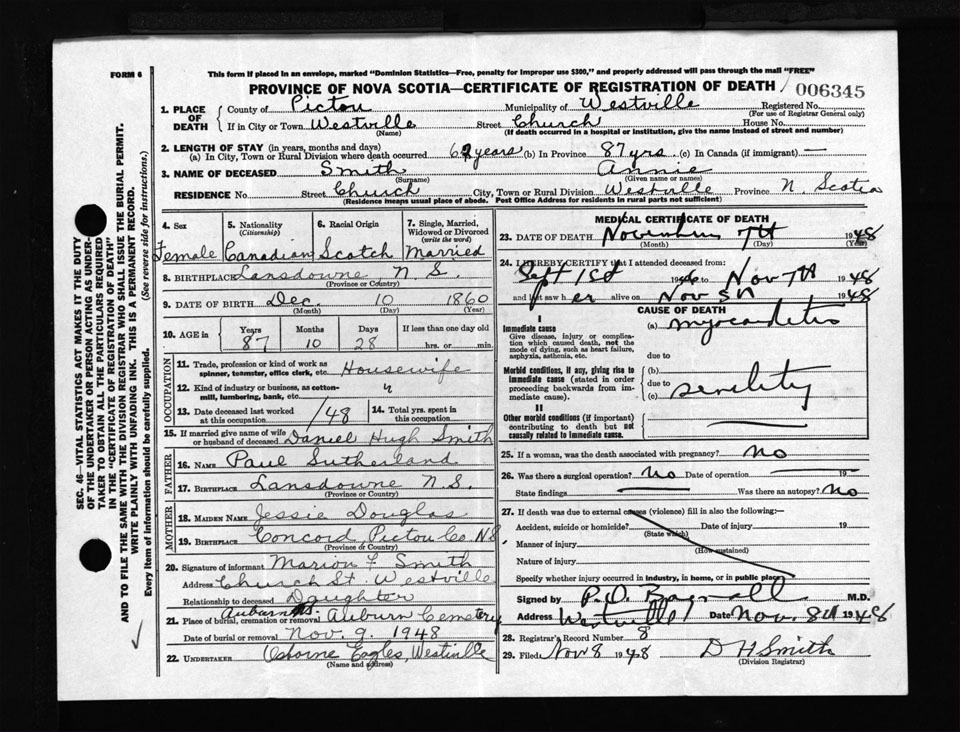 FORM 6
This form if placed in an envelope, marked "Dominion Statistics—Free, penalty for improper use $300," and properly addressed will pass through the mail "FREE"
PROVINCE OF NOVA SCOTIA—CERTIFICATE OF REGISTRATION OF DEATH
006345
1. PLACE OF DEATH
County of Pictou Municipality of Westville Registered No.
(For use of Registrar General only)
If in City or Town Westville Street Church House No.
(Name) (If death occurred in a hospital or institution, give the name instead of street and number)
2. LENGTH OF STAY (in years, months and days)
(a) In City, Town or Rural Division where death occurred years (b) In Province 87 yrs. (c) In Canada (if immigrant) —
3. NAME OF DECEASED Smith Annie
(Surname) (Given name or names)
RESIDENCE No. Street Church City, Town or Rural Division Westville Province N. Scotia
(Residence means usual place of abode. Post Office Address for residents in rural parts not sufficient)
4. Sex 5. Nationality (Citizenship) 6. Racial Origin 7. Single, Married, Widowed or Divorced (write the word)
Female Canadian Scotch Married
8. BIRTHPLACE Lansdowne, N.S.
(Province or Country)
9. DATE OF BIRTH Dec. 10 1860
(Month) (Day) (Year)
10. AGE in Years Months Days If less than one day old
87 10 28 hrs. or min.
OCCUPATION
11. Trade, profession or kind of work as spinner, teamster, office clerk, etc. Housewife
12. Kind of industry or business, as cotton-mill, lumbering, bank, etc. "
13. Date deceased last worked at this occupation /48 14. Total yrs. spent in this occupation
15. If married give name of wife or husband of deceased Daniel Hugh Smith
FATHER
16. NAME Paul Sutherland
17. BIRTHPLACE Lansdowne N.S.
(Province or Country)
MOTHER
18. MAIDEN NAME Jessie Douglas
19. BIRTHPLACE Concord, Pictou Co. NS
(Province or Country)
20. Signature of informant Marion F Smith
Address Church St. Westville
Relationship to deceased Daughter
21. Place of burial, cremation or removal Auburn Cemetery
Date of burial or removal Nov. 9. 1948
22. UNDERTAKER Osborne Eagles, Westville
(Name and address)
MEDICAL CERTIFICATE OF DEATH
23. DATE OF DEATH November 7th 1948
(Month) (Day) (Year)
24. I HEREBY CERTIFY that I attended deceased from:
Sept 1st 1946 to Nov 7th 1948
and last saw her alive on Nov 5th 1948
CAUSE OF DEATH
I
Immediate cause (a) myocarditis
Give disease, injury or complication which caused death, not the mode of dying, such as heart failure, asphyxia, asthenia, etc. due to
Morbid conditions, if any, giving rise to immediate cause (stated in order proceeding backwards from immediate cause). (b) due to (c) senility
II
Other morbid conditions (if important) contributing to death but not causally related to immediate cause.
25. If a woman, was the death associated with pregnancy? no
26. Was there a surgical operation? no Date of operation 19
State findings Was there an autopsy? no
27. If death was due to external causes (violence) fill in also the following:—
Accident, suicide or homicide? Date of injury 19
(State which)
Manner of injury
(How sustained)
Nature of injury
Specify whether injury occurred in industry, in home, or in public place
Signed by P.D. Bagnall M.D.
Address Westville Date Nov. 8th 1948
28. Registrar's Record Number 8
29. Filed Nov 8 1948 D H Smith
(Division Registrar)
SEC. 46—VITAL STATISTICS ACT MAKES IT THE DUTY
OF THE UNDERTAKER OR PERSON ACTING AS UNDER-
TAKER TO OBTAIN ALL THE PARTICULARS REQUIRED
IN THE "CERTIFICATE OF REGISTRATION OF DEATH"
AND TO FILE THE SAME WITH THE DIVISION REGISTRAR WHO SHALL ISSUE THE BURIAL PERMIT.
WRITE PLAINLY WITH UNFADING INK. THIS IS A PERMANENT RECORD.
Every item of information should be carefully supplied. (See reverse side for instructions.)